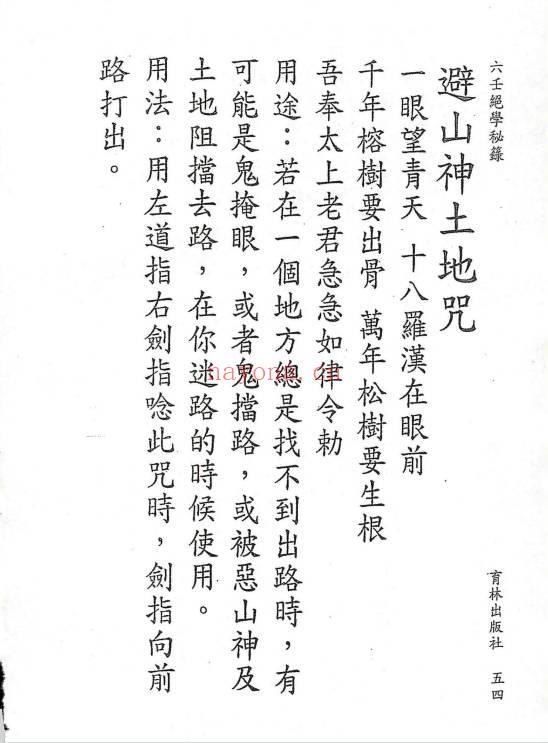 六壬絕學秘錄
避山神土地咒
一眼望青天 十八羅漢在眼前
千年榕樹要出骨 萬年松樹要生根
吾奉太上老君急急如律令勅
用途：若在一個地方總是找不到出路時，有
可能是鬼掩眼，或者鬼擋路，或被惡山神及
土地阻擋去路，在你迷路的時候使用。
用法：用左道指右劍指唸此咒時，劍指向前
路打出。
育林出版社 五四